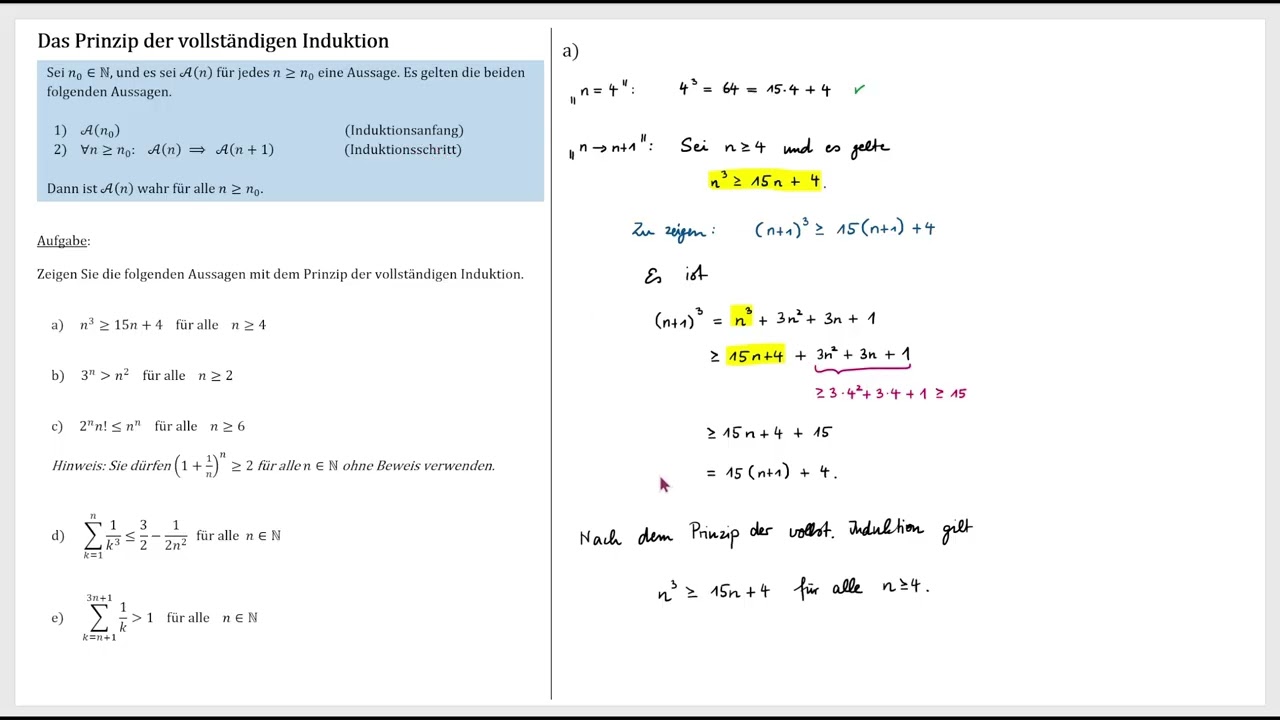 Das Prinzip der vollständigen Induktion
Sei n₀ ∈ ℕ, und es sei 𝒜(n) für jedes n ≥ n₀ eine Aussage. Es gelten die beiden
folgenden Aussagen.
1) 𝒜(n₀) (Induktionsanfang)
2) ∀n ≥ n₀: 𝒜(n) ⟹ 𝒜(n + 1) (Induktionsschritt)
Dann ist 𝒜(n) wahr für alle n ≥ n₀.
Aufgabe:
Zeigen Sie die folgenden Aussagen mit dem Prinzip der vollständigen Induktion.
a) n³ ≥ 15n + 4 für alle n ≥ 4
b) 3ⁿ > n² für alle n ≥ 2
c) 2ⁿn! ≤ nⁿ für alle n ≥ 6
Hinweis: Sie dürfen (1 + 1/n)ⁿ ≥ 2 für alle n ∈ ℕ ohne Beweis verwenden.
d) ∑_{k=1}^{n} 1/k³ ≤ 3/2 − 1/2n² für alle n ∈ ℕ
e) ∑_{k=n+1}^{3n+1} 1/k > 1 für alle n ∈ ℕ
a)
„n = 4": 4³ = 64 = 15·4 + 4 ✓
„n → n+1": Sei n ≥ 4 und es gelte
n³ ≥ 15n + 4.
Zu zeigen: (n+1)³ ≥ 15(n+1) + 4
Es ist
(n+1)³ = n³ + 3n² + 3n + 1
≥ 15n+4 + 3n² + 3n + 1
≥ 3·4² + 3·4 + 1 ≥ 15
≥ 15n + 4 + 15
= 15(n+1) + 4.
Nach dem Prinzip der vollst. Induktion gilt
n³ ≥ 15n + 4 für alle n ≥ 4.